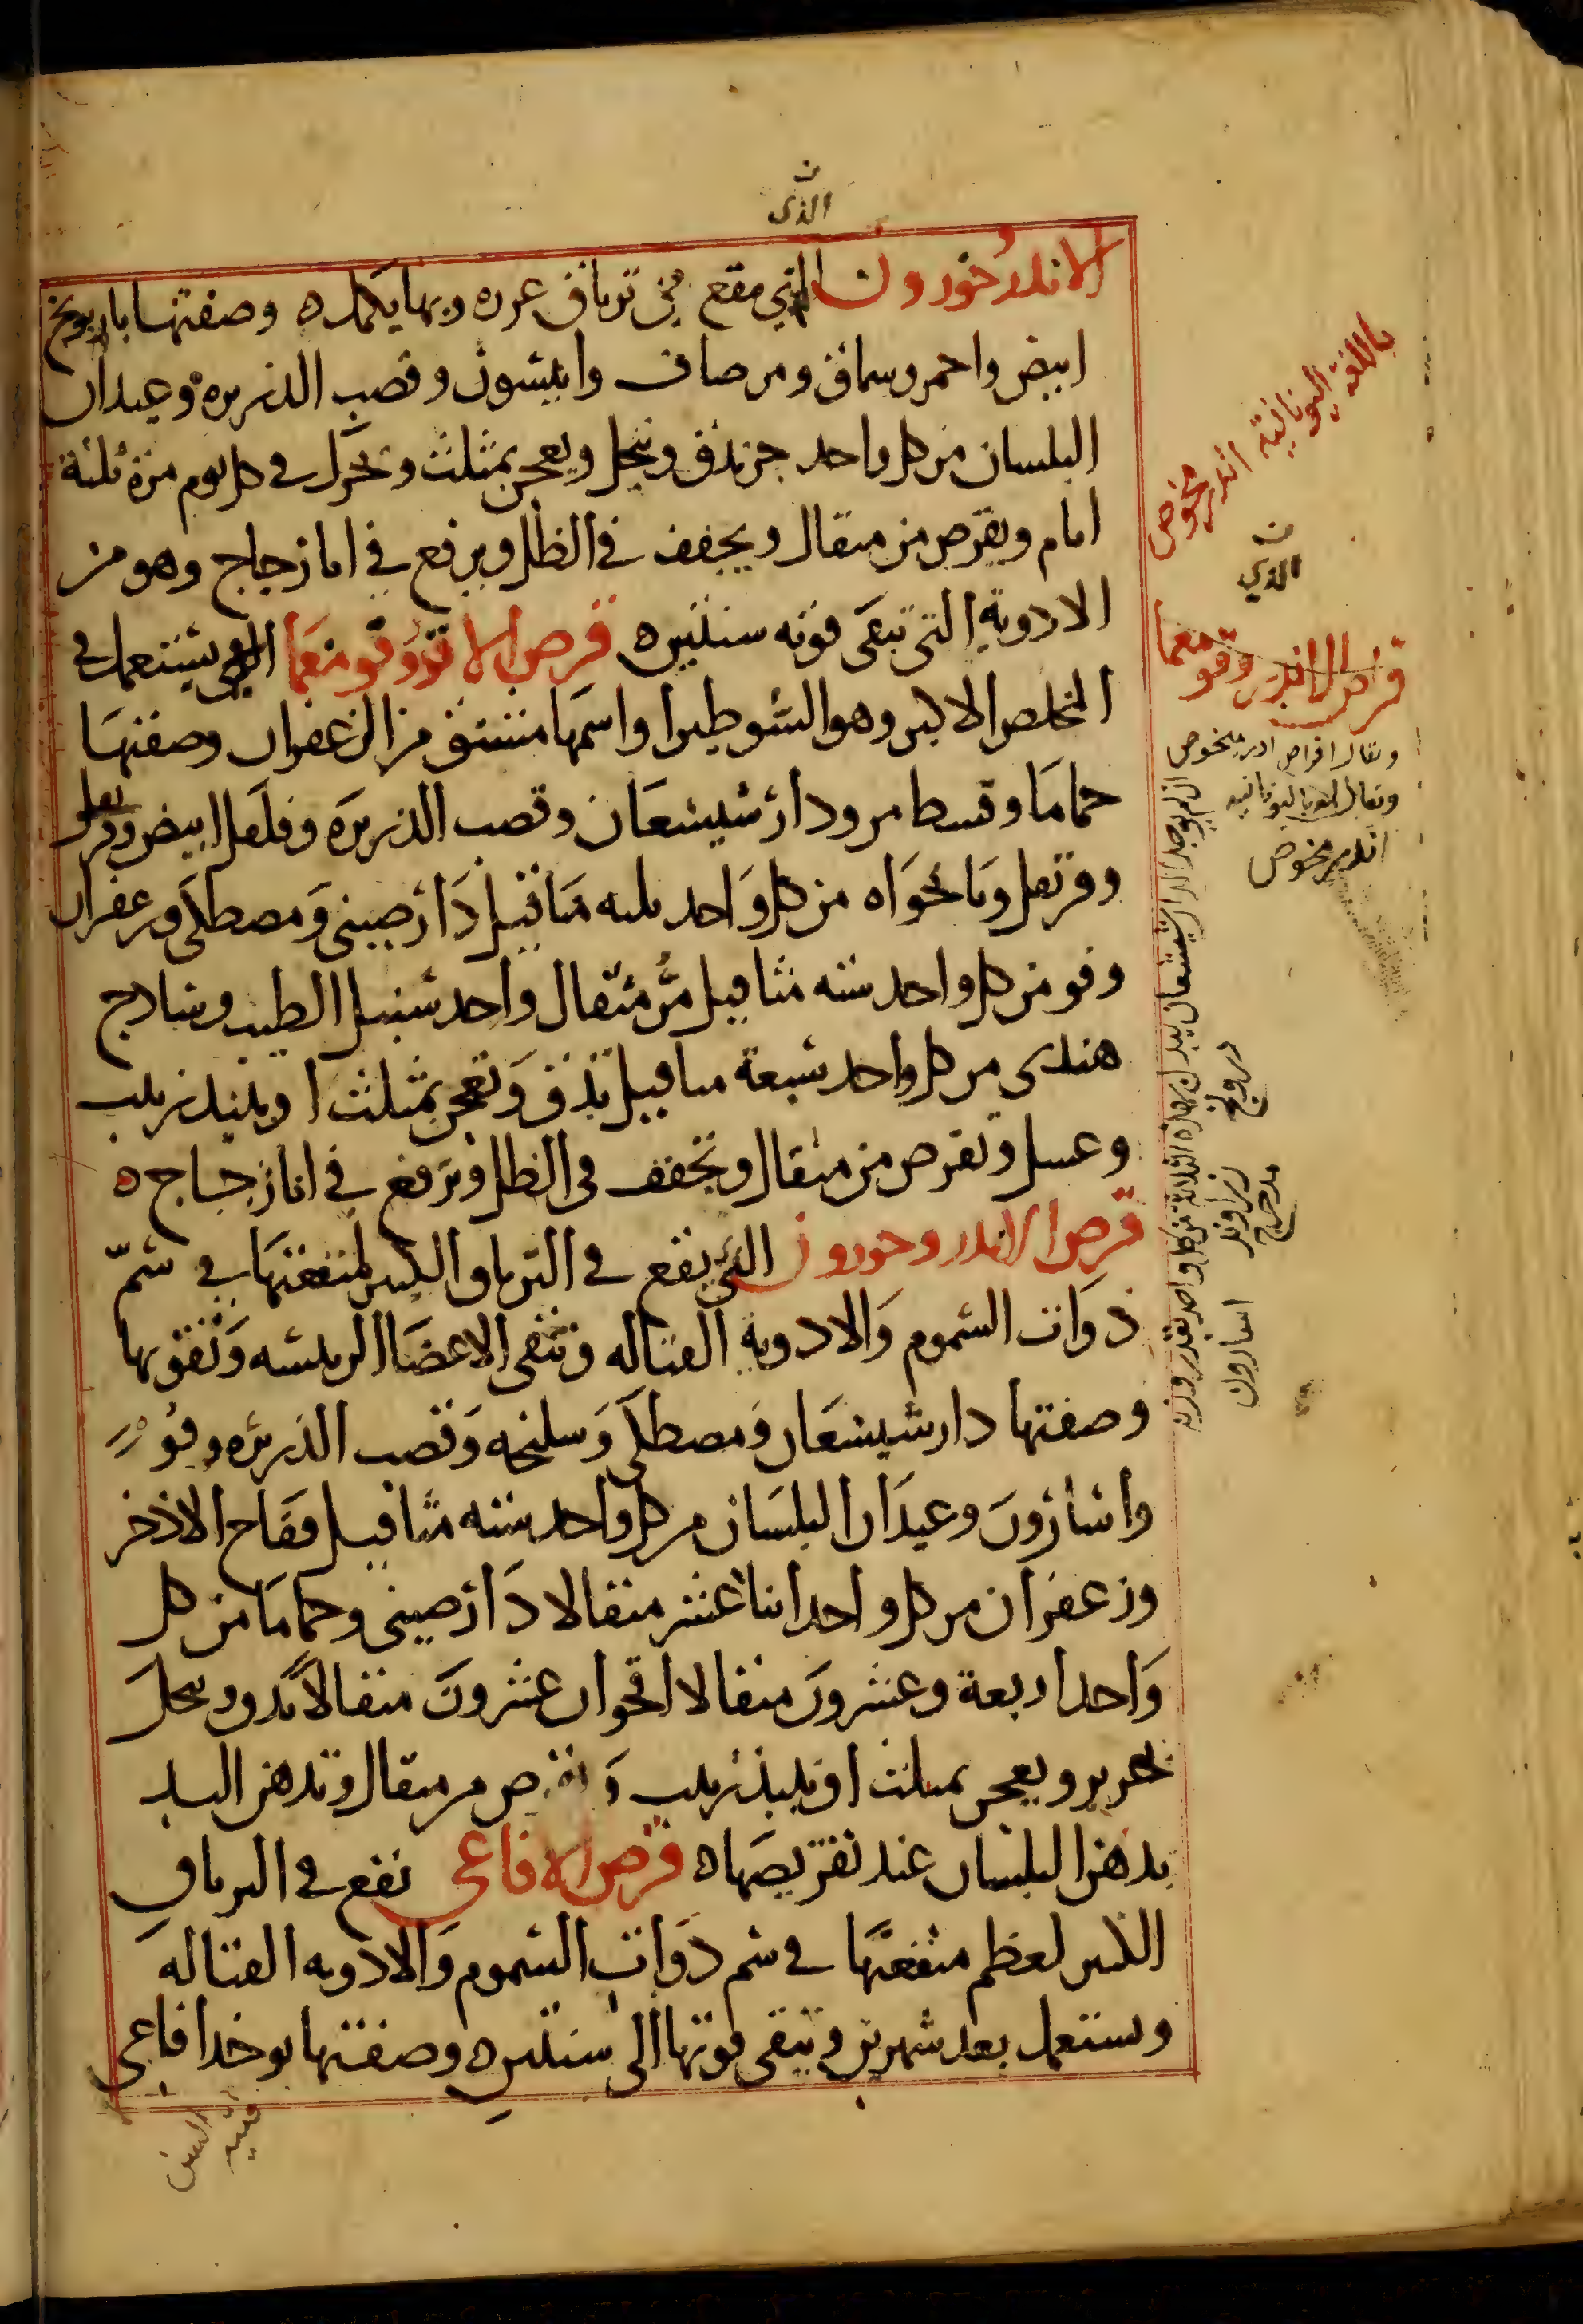 الذى
الاندرخورون الذي يقع في ترياق عزره وبها يكمل ه وصفتها بابونج
ابيض واحمر وسماق ومر صاف وانيسون وقصب الذريره وعيدان
البلسان من كل واحد جز يدق وينخل ويعجن بمثلث وتحرك في كل يوم مرة ثلثة
ايام ويقرص من مثقال ويجفف في الظل ويرفع في انا زجاج وهو من
الادوية التي تبقى قوته سنتين ه قرص الاندروقومغما الذي يستعمل في
المخلص الاكبر وهو الشوطيرا واسمها مشتق من الزعفران وصفتها
حماما وقسط مر ودارشيشعان وقصب الذريره وفلفل ابيض
وقرنفل ونانخواه من كل واحد ثلثه مثاقيل دارصيني ومصطكى وزعفران
وفو من كل واحد سته مثاقيل مر مثقال واحد سنبل الطيب وساذج
هندى من كل واحد سبعة مثاقيل تدق وتعجن بمثلث او بنبيذ زبيب
وعسل وتقرص من مثقال وتجفف في الظل وترفع في انا زجاج ه
قرص الاندروخورون التي يقع في الترياق الكبير لمنفعتها في سم
ذوات السموم والادويه القتاله وتنقى الاعضا الرئيسه وتقويها
وصفتها دارشيشعان ومصطكى وسليخه وقصب الذريره وفو
واسارون وعيدان البلسان من كل واحد سته مثاقيل فقاح الاذخر
وزعفران من كل واحد اثنا عشر مثقالا دارصيني وحماما من كل
واحد اربعة وعشرون مثقالا اقحوان عشرون مثقالا تدق وتنخل
بحرير ويعجن بمثلث او بنبيذ زبيب وتقرص من مثقال وتدهن اليد
بدهن البلسان عند تقريصها ه قرص الافاعى تقع في الترياق
الكبير لعظم منفعتها في سم ذوات السموم والادويه القتاله
وتستعمل بعد شهرين وتبقى قوتها الى سنتين ه وصفتها يوخذ افاعى
باللغة اليونانية اندرمخوص
الذي
قراص الاندروقومعما
ويقال اقراص ادرمخوص
ويقال لها باليونانيه
اندرمخوص
ان لم يوجد الدارشيشعان يبدل بهذه الثلاثة من كل واحد بقدر وزنه
درونج
زراوند مدحرج
اسارون